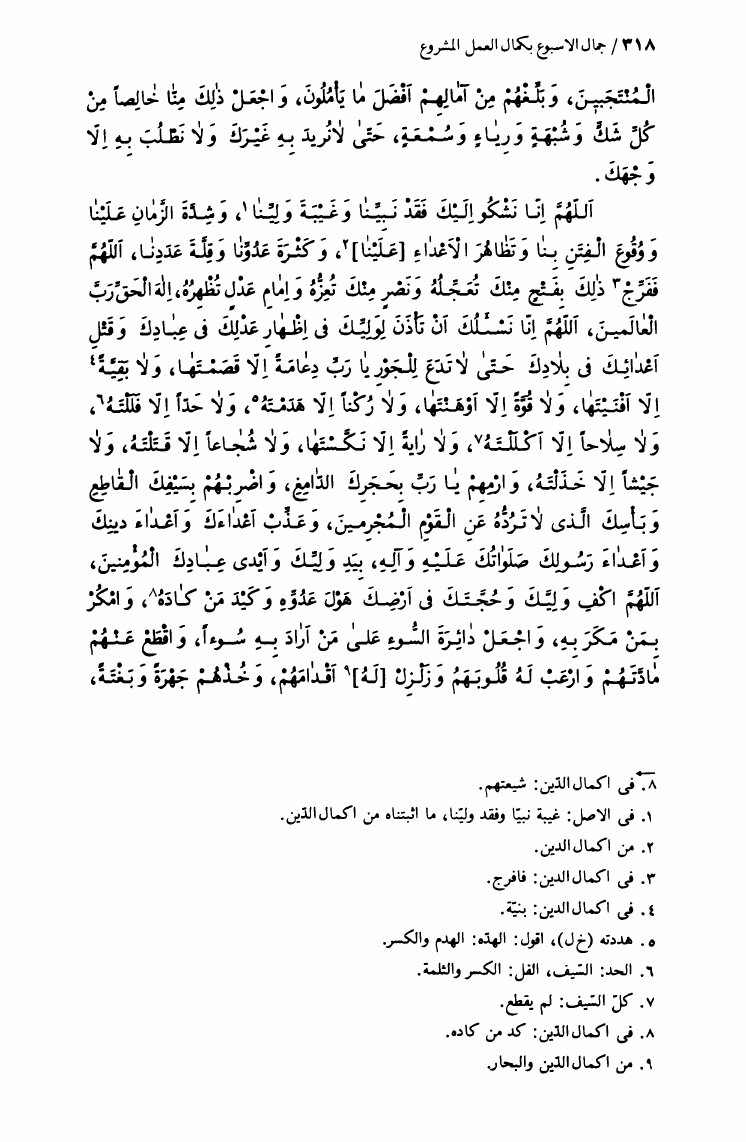 ٣١٨ / جمال الاسبوع بكمال العمل المشروع
الْمُنْتَجَبِينَ، وَ بَلِّغْهُمْ مِنْ آمٰالِهِمْ اَفْضَلَ مٰا يَأْمُلُونَ، وَ اجْعَلْ ذٰلِكَ مِنّٰا خٰالِصاً مِنْ
كُلِّ شَكٍّ وَ شُبْهَةٍ وَ رِيٰاءٍ وَ سُمْعَةٍ، حَتّىٰ لٰانُرِيدَ بِهِ غَيْرَكَ وَ لٰا نَطْلُبَ بِهِ اِلّٰا
وَجْهَكَ.
اَللّٰهُمَّ اِنّٰا نَشْكُو اِلَيْكَ فَقْدَ نَبِيِّنٰا وَ غَيْبَةَ وَلِيِّنٰا١، وَ شِدَّةَ الزَّمٰانِ عَلَيْنٰا
وَ وُقُوعَ الْفِتَنِ بِنٰا وَ تَظٰاهُرَ الْاَعْدٰاءِ [عَلَيْنٰا]٢، وَ كَثْرَةَ عَدُوِّنٰا وَ قِلَّةَ عَدَدِنٰا، اَللّٰهُمَّ
فَفَرِّجْ٣ ذٰلِكَ بِفَتْحٍ مِنْكَ تُعَجِّلُهُ وَ نَصْرٍ مِنْكَ تُعِزُّهُ وَ اِمٰامِ عَدْلٍ تُظْهِرُهُ، اِلٰهَ الْحَقِّ رَبَّ
الْعٰالَمينَ، اَللّٰهُمَّ اِنّٰا نَسْئَلُكَ اَنْ تَأْذَنَ لِوَلِيِّكَ فى اِظْهٰارِ عَدْلِكَ فى عِبٰادِكَ وَ قَتْلِ
اَعْدٰائِكَ فى بِلٰادِكَ حَتّىٰ لٰا تَدَعَ لِلْجَوْرِ يٰا رَبِّ دِعٰامَةً اِلّٰا قَصَمْتَهٰا، وَ لٰا بَقِيَّةً٤
اِلّٰا اَفْنَيْتَهٰا، وَ لٰا قُوَّةً اِلّٰا اَوْهَنْتَهٰا، وَ لٰا رُكْناً اِلّٰا هَدَمْتَهُ٥، وَ لٰا حَدّاً اِلّٰا فَلَلْتَهُ٦،
وَ لٰا سِلٰاحاً اِلّٰا اَكْلَلْتَهُ٧، وَ لٰا رٰايَةً اِلّٰا نَكَّسْتَهٰا، وَ لٰا شُجٰاعاً اِلّٰا قَتَلْتَهُ، وَ لٰا
جَيْشاً اِلّٰا خَذَلْتَهُ، وَ ارْمِهِمْ يٰا رَبِّ بِحَجَرِكَ الدّٰامِغِ، وَ اضْرِبْهُمْ بِسَيْفِكَ الْقٰاطِعِ
وَ بَأْسِكَ الَّذى لٰا تَرُدُّهُ عَنِ الْقَوْمِ الْمُجْرِمينَ، وَ عَذِّبْ اَعْدٰاءَكَ وَ اَعْدٰاءَ دينِكَ
وَ اَعْدٰاءَ رَسُولِكَ صَلَوٰاتُكَ عَلَيْهِ وَ آلِهِ، بِيَدِ وَلِيِّكَ وَ اَيْدى عِبٰادِكَ الْمُؤْمِنينَ،
اَللّٰهُمَّ اكْفِ وَلِيَّكَ وَ حُجَّتَكَ فى اَرْضِكَ هَوْلَ عَدُوِّهِ وَ كَيْدَ مَنْ كٰادَهُ٨، وَ امْكُرْ
بِمَنْ مَكَرَ بِهِ، وَ اجْعَلْ دٰائِرَةَ السُّوءِ عَلىٰ مَنْ اَرٰادَ بِهِ سُوءاً، وَ اقْطَعْ عَنْهُمْ
مٰادَّتَهُمْ وَ ارْعَبْ لَهُ قُلُوبَهُمُ وَ زَلْزِلْ [لَهُ]٩ اَقْدٰامَهُمْ، وَ خُذْهُمْ جَهْرَةً وَ بَغْتَةً،
٨. فى اكمال الدّين: شيعتهم.
١. فى الاصل: غيبة نبيّا وفقد وليّنا، ما اثبتناه من اكمال الدّين.
٢. من اكمال الدين.
٣. فى اكمال الدّين: فافرج.
٤. فى اكمال الدّين: بنيّة.
٥. هددته (خ ل)، اقول: الهدّه: الهدم والكسر.
٦. الحد: السّيف، الفل: الكسر والثلمة.
٧. كلّ السّيف: لم يقطع.
٨. فى اكمال الدّين: كد من كاده.
٩. من اكمال الدّين والبحار.